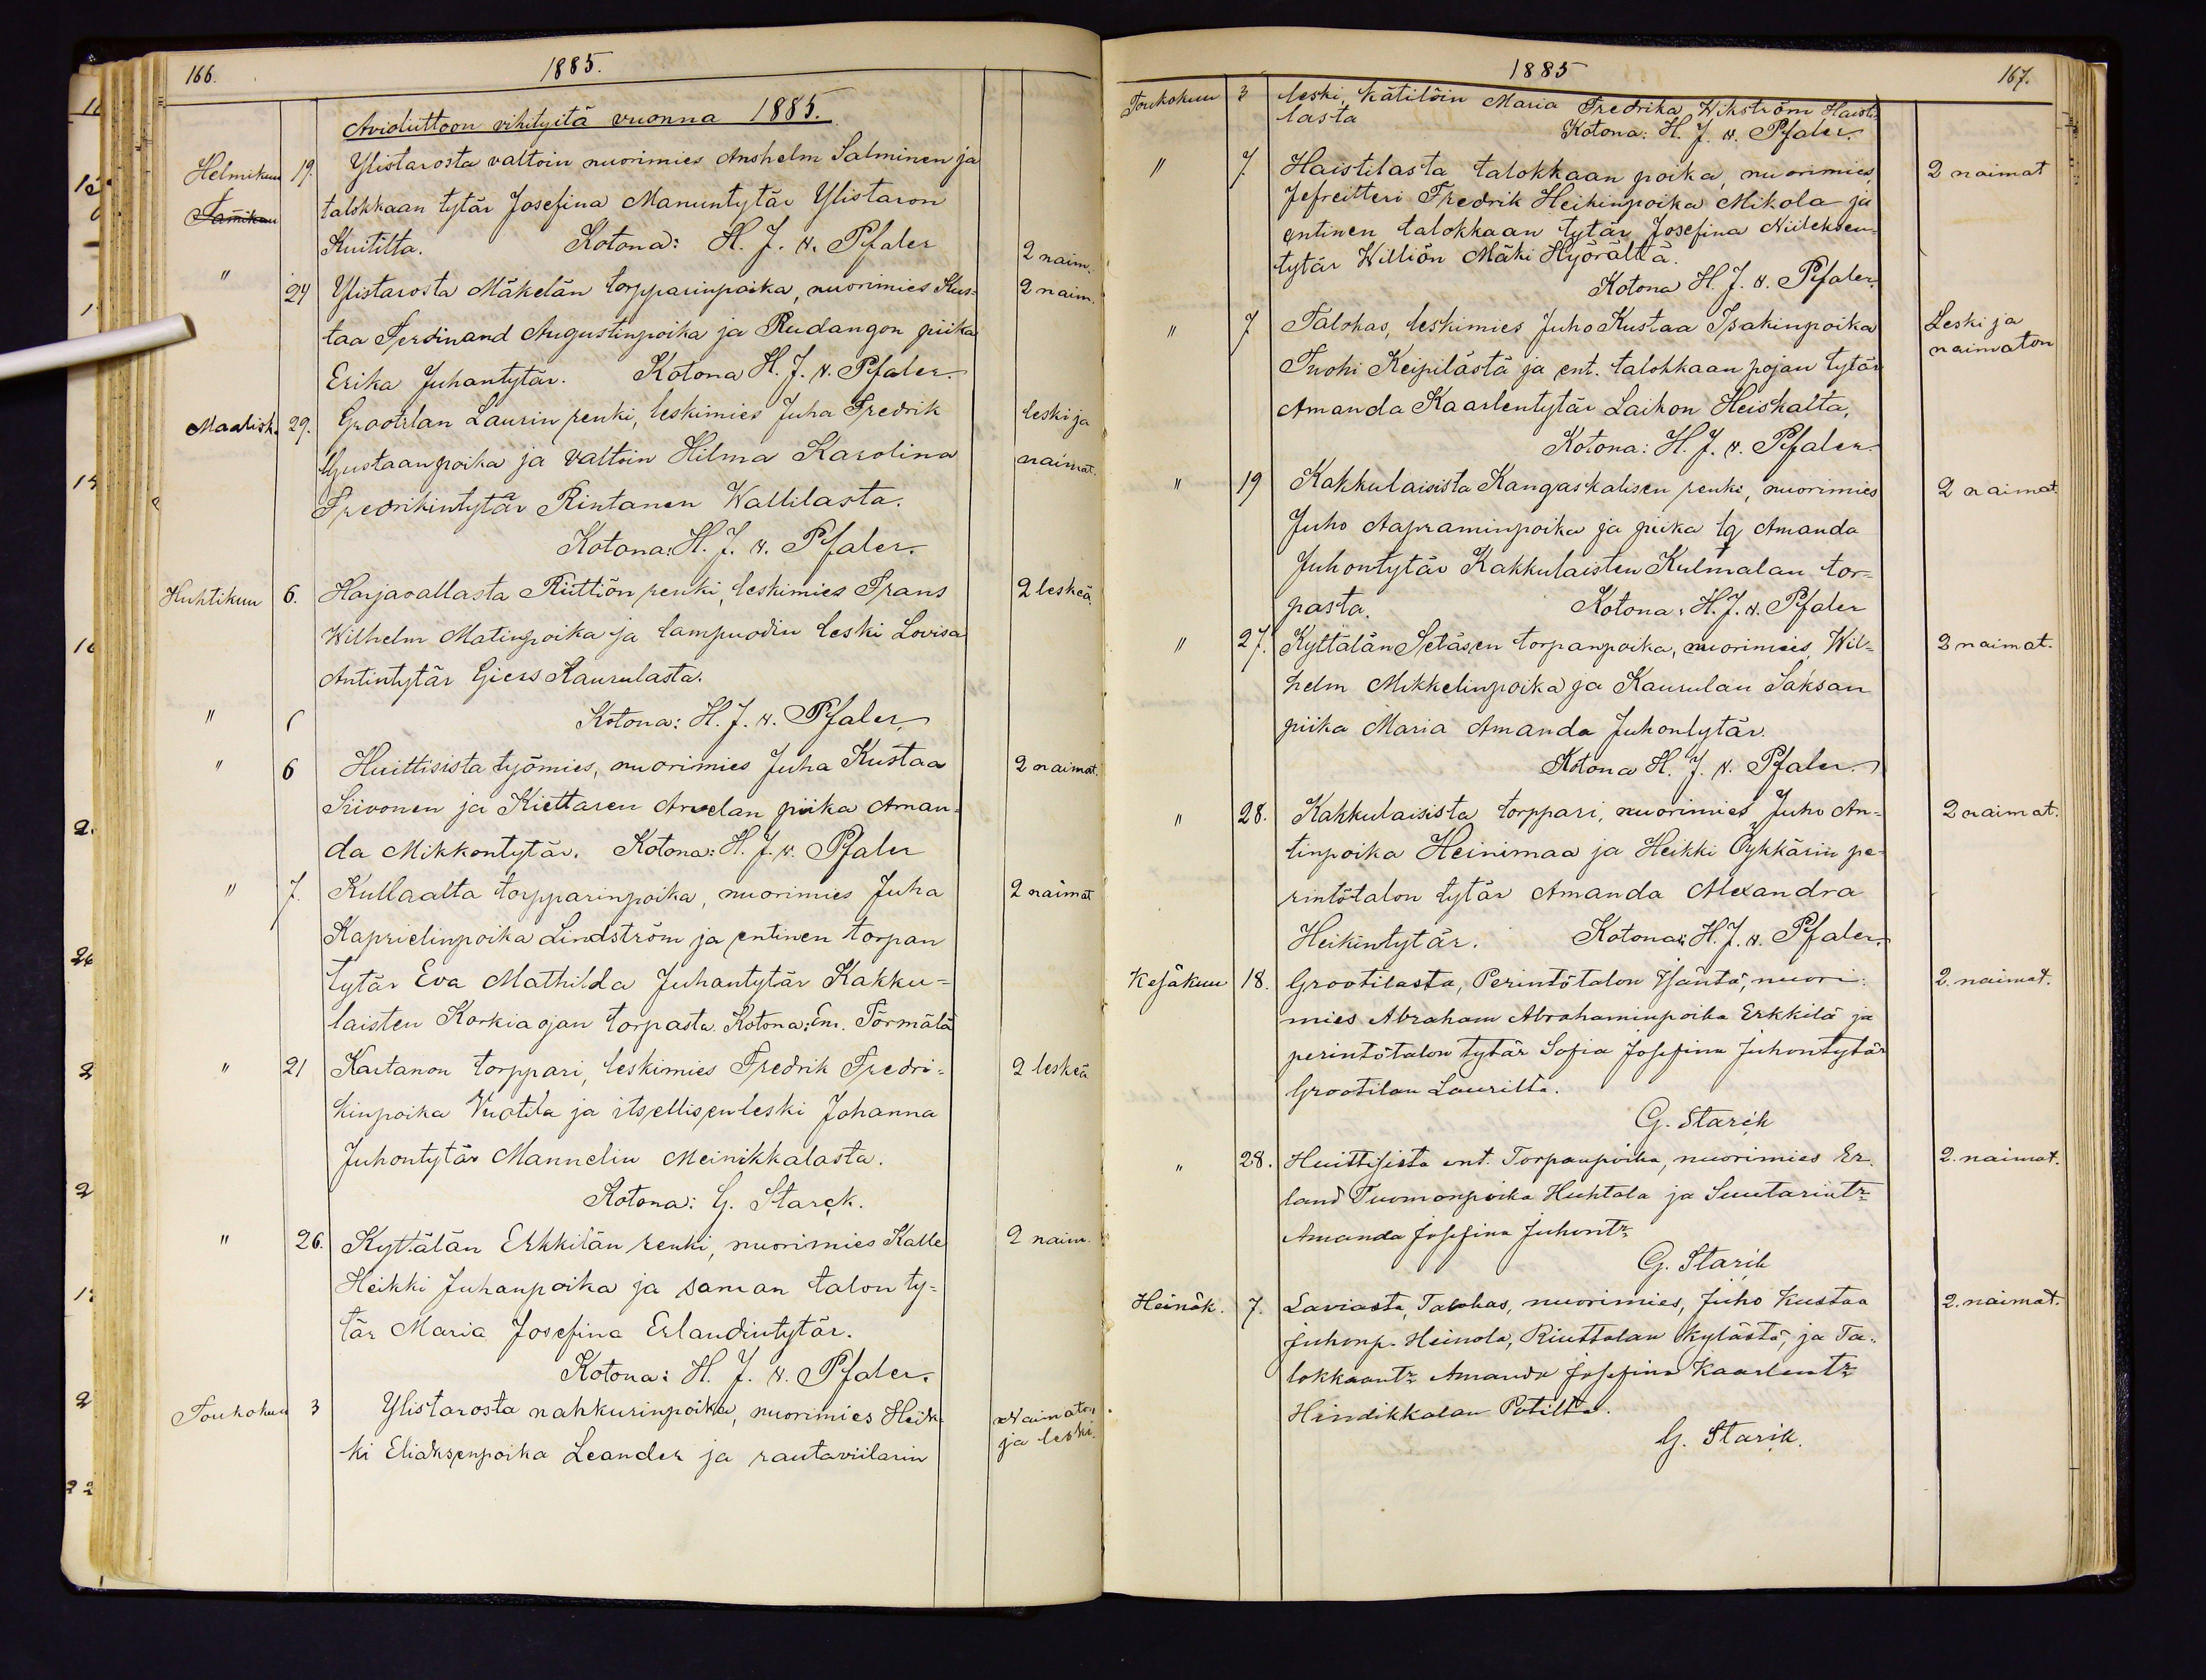 166.
1885.
Avioliittoon vihityitä vuonna 1885.
Helmikuu 19. Ylistarosta valtoin nuorimies Anshelm Salminen ja
Tamikuu talokkaan tytär Josefina Manuntytär Ylistaron
Kuititta. Kotona: H. J. v. Pfaler 2 naim.
" 24 Ylistarosta Mäkelän torpparinpoika, nuorimies Kus= 2 naim.
taa Ferdinand Augustinpoika ja Rudangon piika
Erika Juhantytär. Kotona H. J. v. Pfaler.
Maalisk. 29. Grootilan Laurin renki, leskimies Juha Fredrik leski ja
Gustaanpoika ja valtoin Hilma Karolina naimat.
Fredrikintytär Rintanen Wallilasta.
Kotona: H. J. v. Pfaler.
Huhtikuu 6. Harjavallasta Riittiön renki, leskimies Frans 2 leskeä.
Wilhelm Matinpoika ja lampuodin leski Lovisa
Antintytär Giers Kaurulasta.
" Kotona: H. J. v. Pfaler.
" 6 Huittisista työmies, nuorimies Juha Kustaa 2 naimat.
Siivonen ja Kiettaren Arvelan piika Aman=
da Mikkontytär. Kotona: H. J. v. Pfaler
" 7. Kullaalta torpparinpoika, nuorimies Juha 2 naimat
Kaprielinpoika Lindström ja entinen torpan
tytär Eva Mathilda Juhantytär Kakku=
laisten Korkiaojan torpasta. Kotona: Em. Törmälä
" 21 Kartanon torppari, leskimies Fredrik Fredri= 2 leskeä
kinpoika Vuotila ja itsellisenleski Johanna
Juhontytär Mannelin Meinikkalasta.
Kotona: G. Starck.
" 26. Kyttälän Erkkilän renki, nuorimies Kalle 2 naim.
Heikki Juhanpoika ja saman talon ty=
tär Maria Josefina Erlandintytär.
Kotona: H. J. v. Pfaler.
Toukokuu 3 Ylistarosta nahkurinpoika, nuorimies Heik= Naimaton
ki Eliaksenpoika Leander ja rautaviilarin ja leski.
1885
167.
Toukokuu 3 leski, kätilöin Maria Fredrika Wikström Haisti
lasta Kotona: H. J. v. Pfaler.
" 7. Haistilasta talokkaan poika, nuorimies, 2 naimat
Jefreitteri Fredrik Heikinpoika Mikola ja
entinen talokkaan tytär Josefina Niileksen=
tytär Williön Mäki Hyörältä.
Kotona H. J. v. Pfaler.
" 7 Talokas, leskimies Juho Kustaa Isakinpoika Leski ja
Tuohi Keipilästä ja ent. talokkaan pojan tytär naimaton
Amanda Kaarlentytär Laikon Heiskalta,
Kotona: H. J. v. Pfaler.
" 19 Kakkulaisista Kangaskalisen renki, nuorimies 2 naimat.
Juho Aapraminpoika ja piika Amanda
Juhontytär Kakkulaisten Kulmalan tor=
pasta. Kotona: H. J. v. Pfaler
" 27. Kyttälän Setäsen torpanpoika, nuorimies, Wil= 2 naimat.
helm Mikkelinpoika ja Kaurulan Saksan
piika Maria Amanda Juhontytär.
Kotona H. J. v. Pfaler.
" 28. Kakkulaisista torppari, nuorimies Juho An= 2 naimat.
tinpoika Heinimaa ja Heikki Öykkärin pe=
rintötalon tytär Amanda Alexandra
Heikintytär. Kotona: H. J. v. Pfaler.
Kesäkuu 18. Grootilasta, Perintötalon Isäntä, nuori= 2. naimat.
mies Abraham Abrahaminpoika Erkkilä ja
perintötalon tytär Sofia Josefina Juhontytär
Grootilan Laurilta.
G. Starck
" 28. Huittisista ent. Torpanpoika, nuorimies Er= 2. naimat.
land Tuomonpoika Huhtala ja Suutarintr
Amanda Josefina Juhontr
G. Starck
Heinäk. 7. Laviasta, Talokas, nuorimies, Juho Kustaa 2. naimat.
Juhonp. Heinola, Riuttalan kylästä, ja Ta=
lokkaantr Amanda Josefina Kaarlentr
Hindikkalan Potilta.
G. Starck.